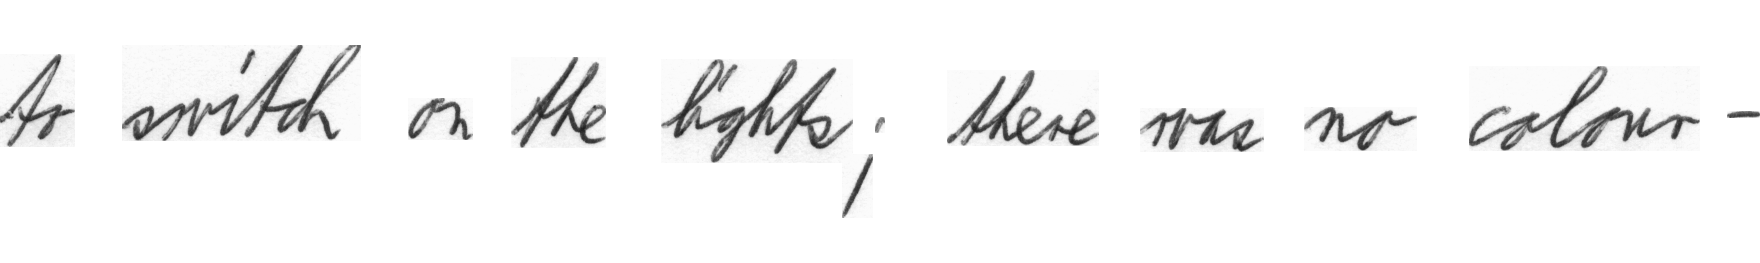 to switch on the lights; there was no colour -